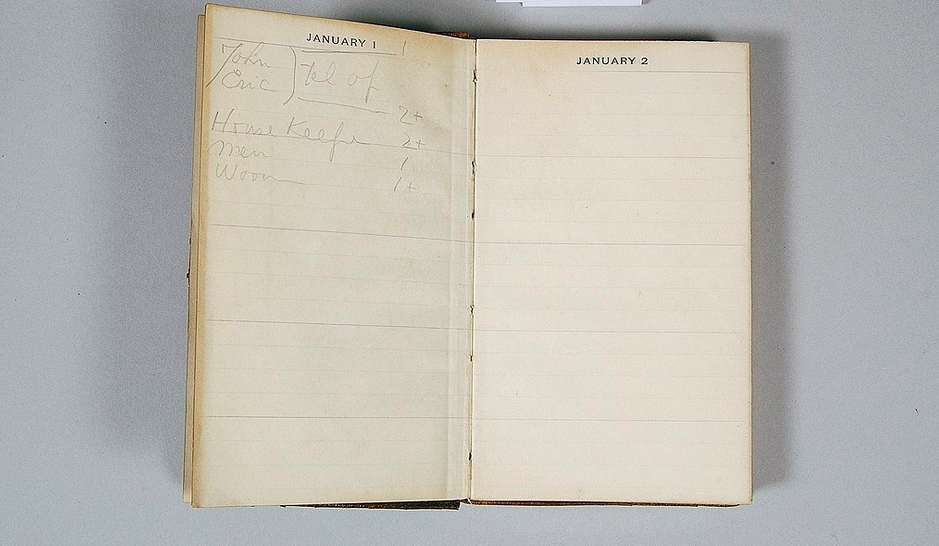 JANUARY 1 1
John
Eric
tel of
2+
House Keeper 2+
Men 1
1+
JANUARY 2